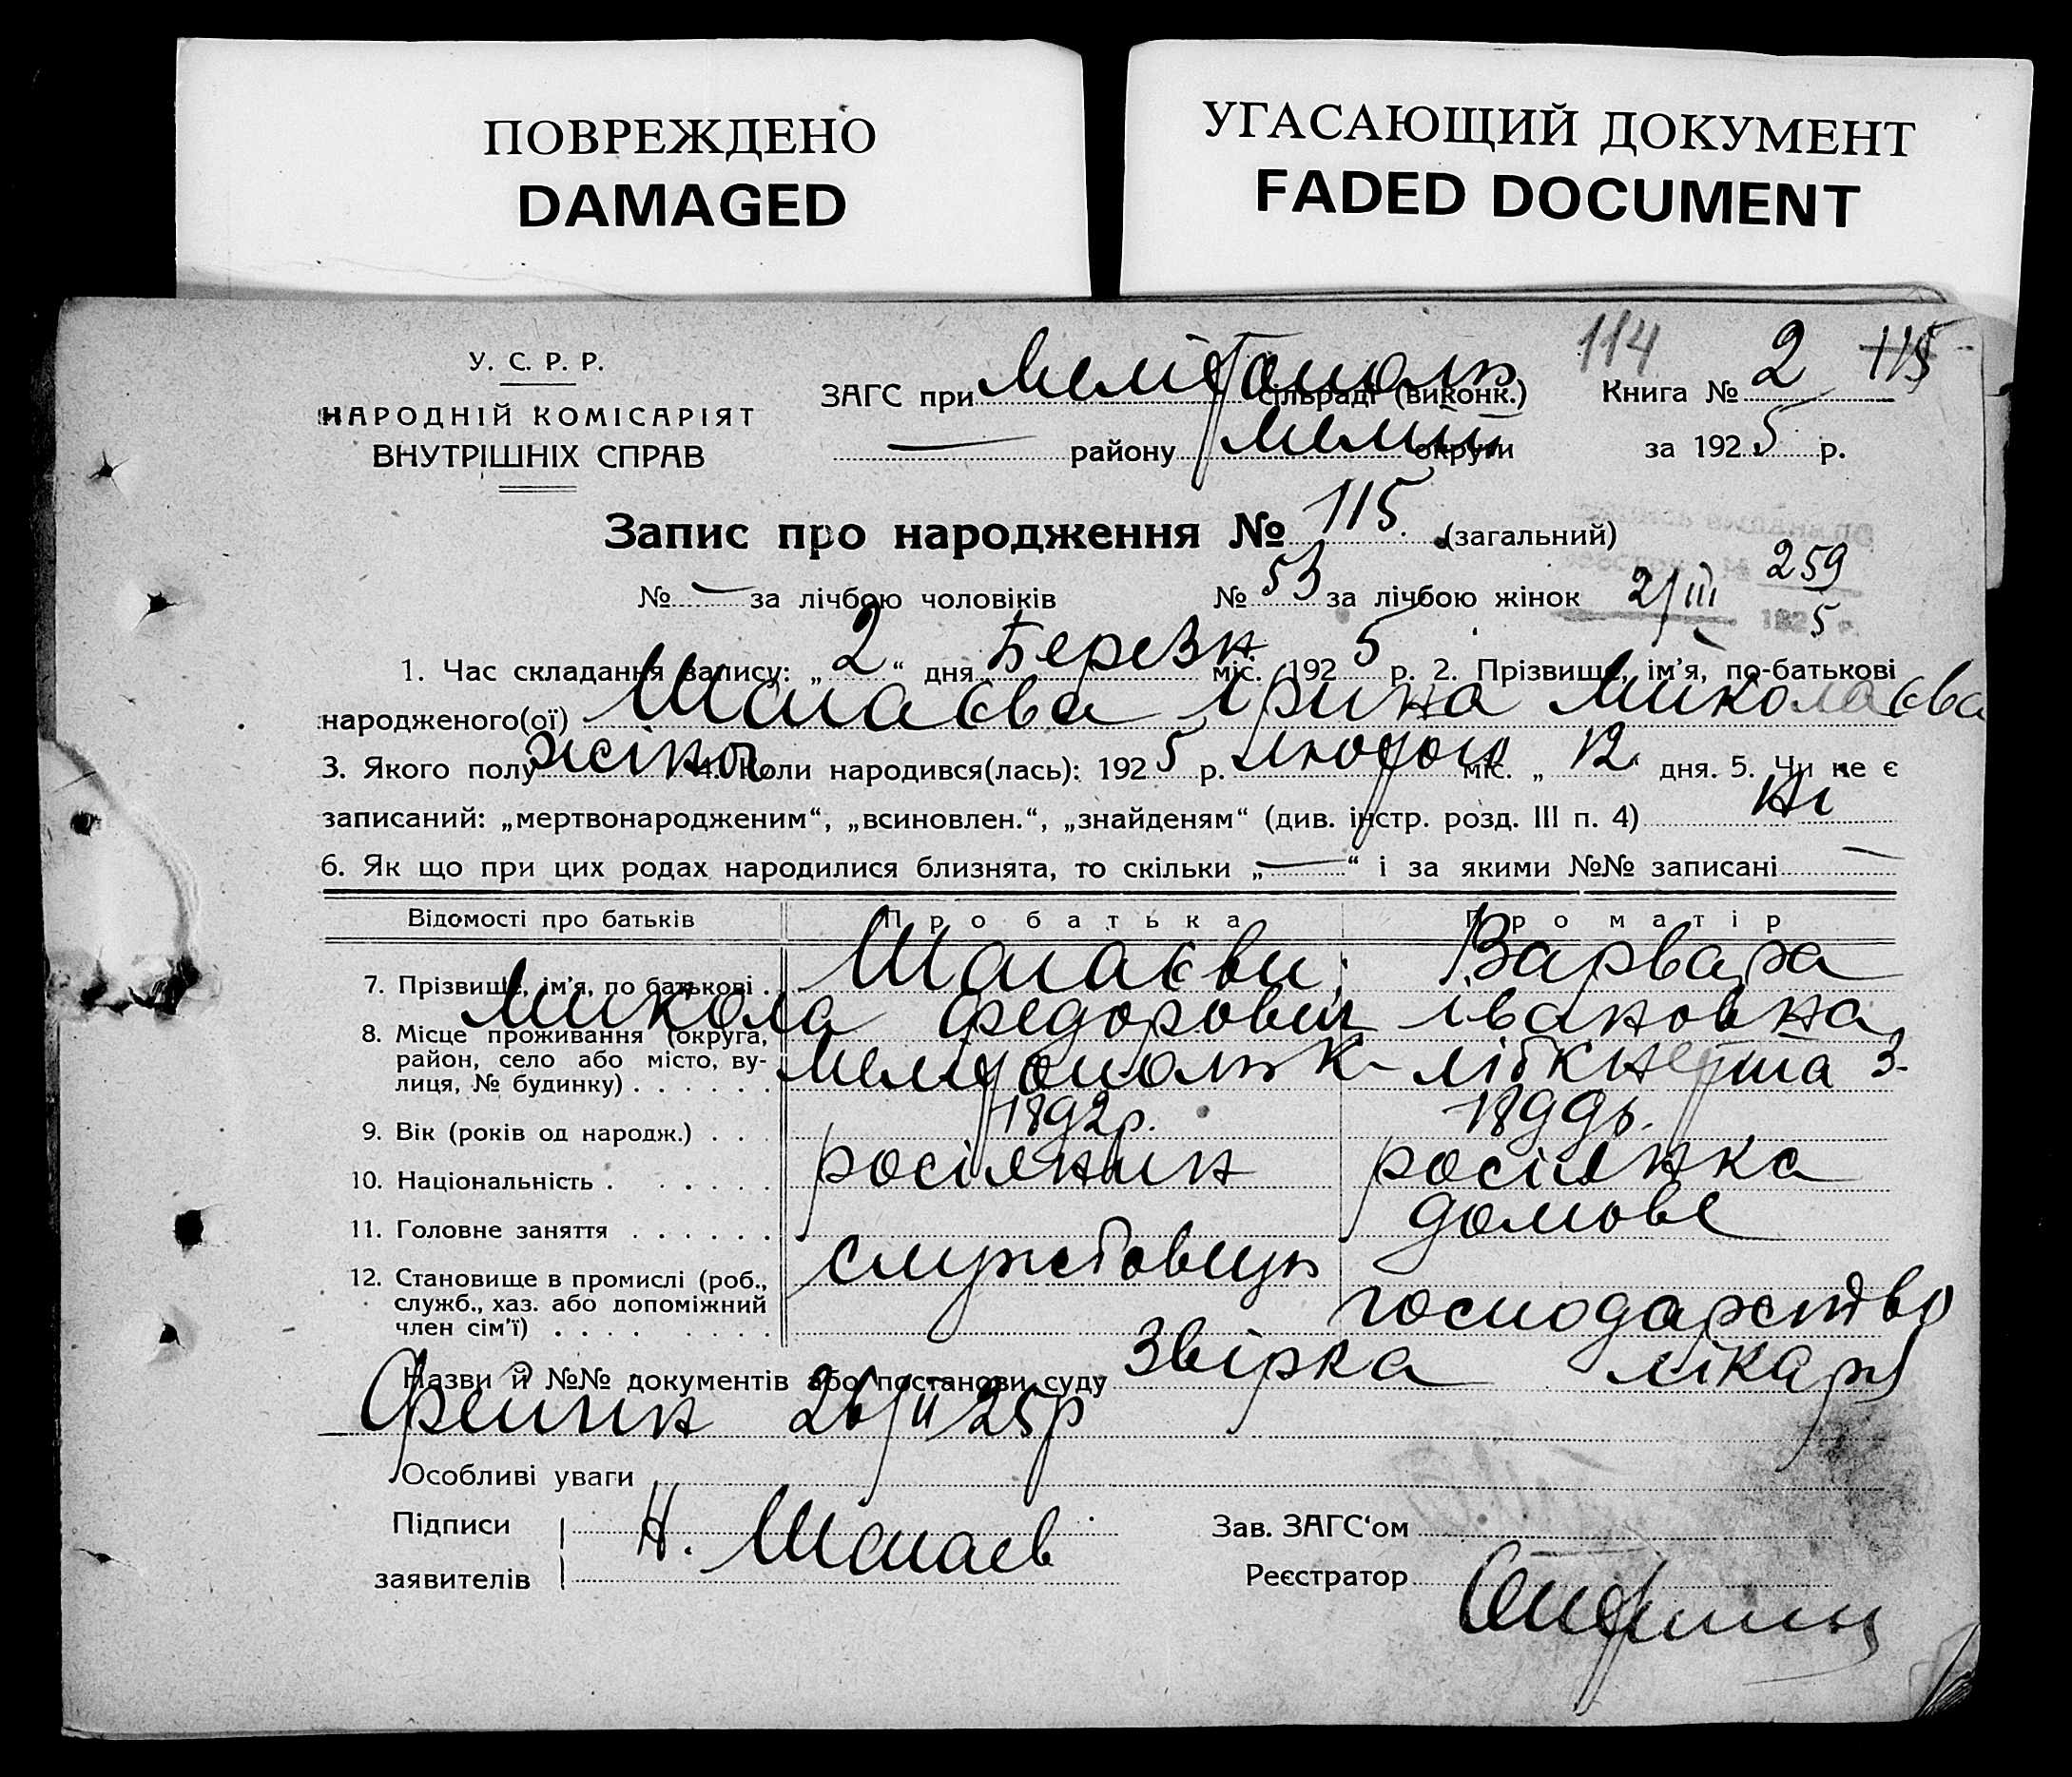 ПОВРЕЖДЕНО
DAMAGED
УГАСАЮЩИЙ ДОКУМЕНТ
FADED DOCUMENT
У. С. Р. Р.
НАРОДНІЙ КОМІСАРІЯТ
ВНУТРІШНІХ СПРАВ
114
115
ЗАГС при Мелітополь сільраді (виконк.)
Книга № 2
— району Меліт округи
за 1925 р.
Запис про народження № 115. (загальний)
259
№ — за лічбою чоловіків № 53 за лічбою жінок 2/III 1925 р.
1. Час складання запису: „ 2 “ дня Березня міс. 1925 р. 2. Прізвище, ім'я, по-батькові
народженого(ої) Шагаєва Ірина Миколаєва
3. Якого полу жіноч 4. Коли народився(лась): 1925 р. лютого міс. „ 12. дня. 5. Чи не є
записаний: „мертвонародженим“, „всиновлен.“, „знайденям“ (див. інстр. розд. III п. 4) ні
6. Як що при цих родах народилися близнята, то скільки „—“ і за якими №№ записані —
Відомості про батьків Про батька Про матір
7. Прізвище, ім'я, по батькові . Шагаєви, Варвара
Микола Федорович Івановна
8. Місце проживання (округа,
район, село або місто, ву-
лиця, № будинку) . . . . . . Мелітополь К-Лібкнехта 3.
9. Вік (років од народж.) . . . 1892р. 1899р.
10. Національність . . . . . . росіянин росіянка
11. Головне заняття . . . . . . домове
службовець
12. Становище в промислі (роб.,
служб., хаз. або допоміжний
член сім'ї) . . . . . . . . . господарство
Назви й №№ документів або постанови суду Звірка лікаря
26/II 25р
Особливі уваги
Підписи
заявителів
Н. Шагаев
Зав. ЗАГС'ом
Реєстратор